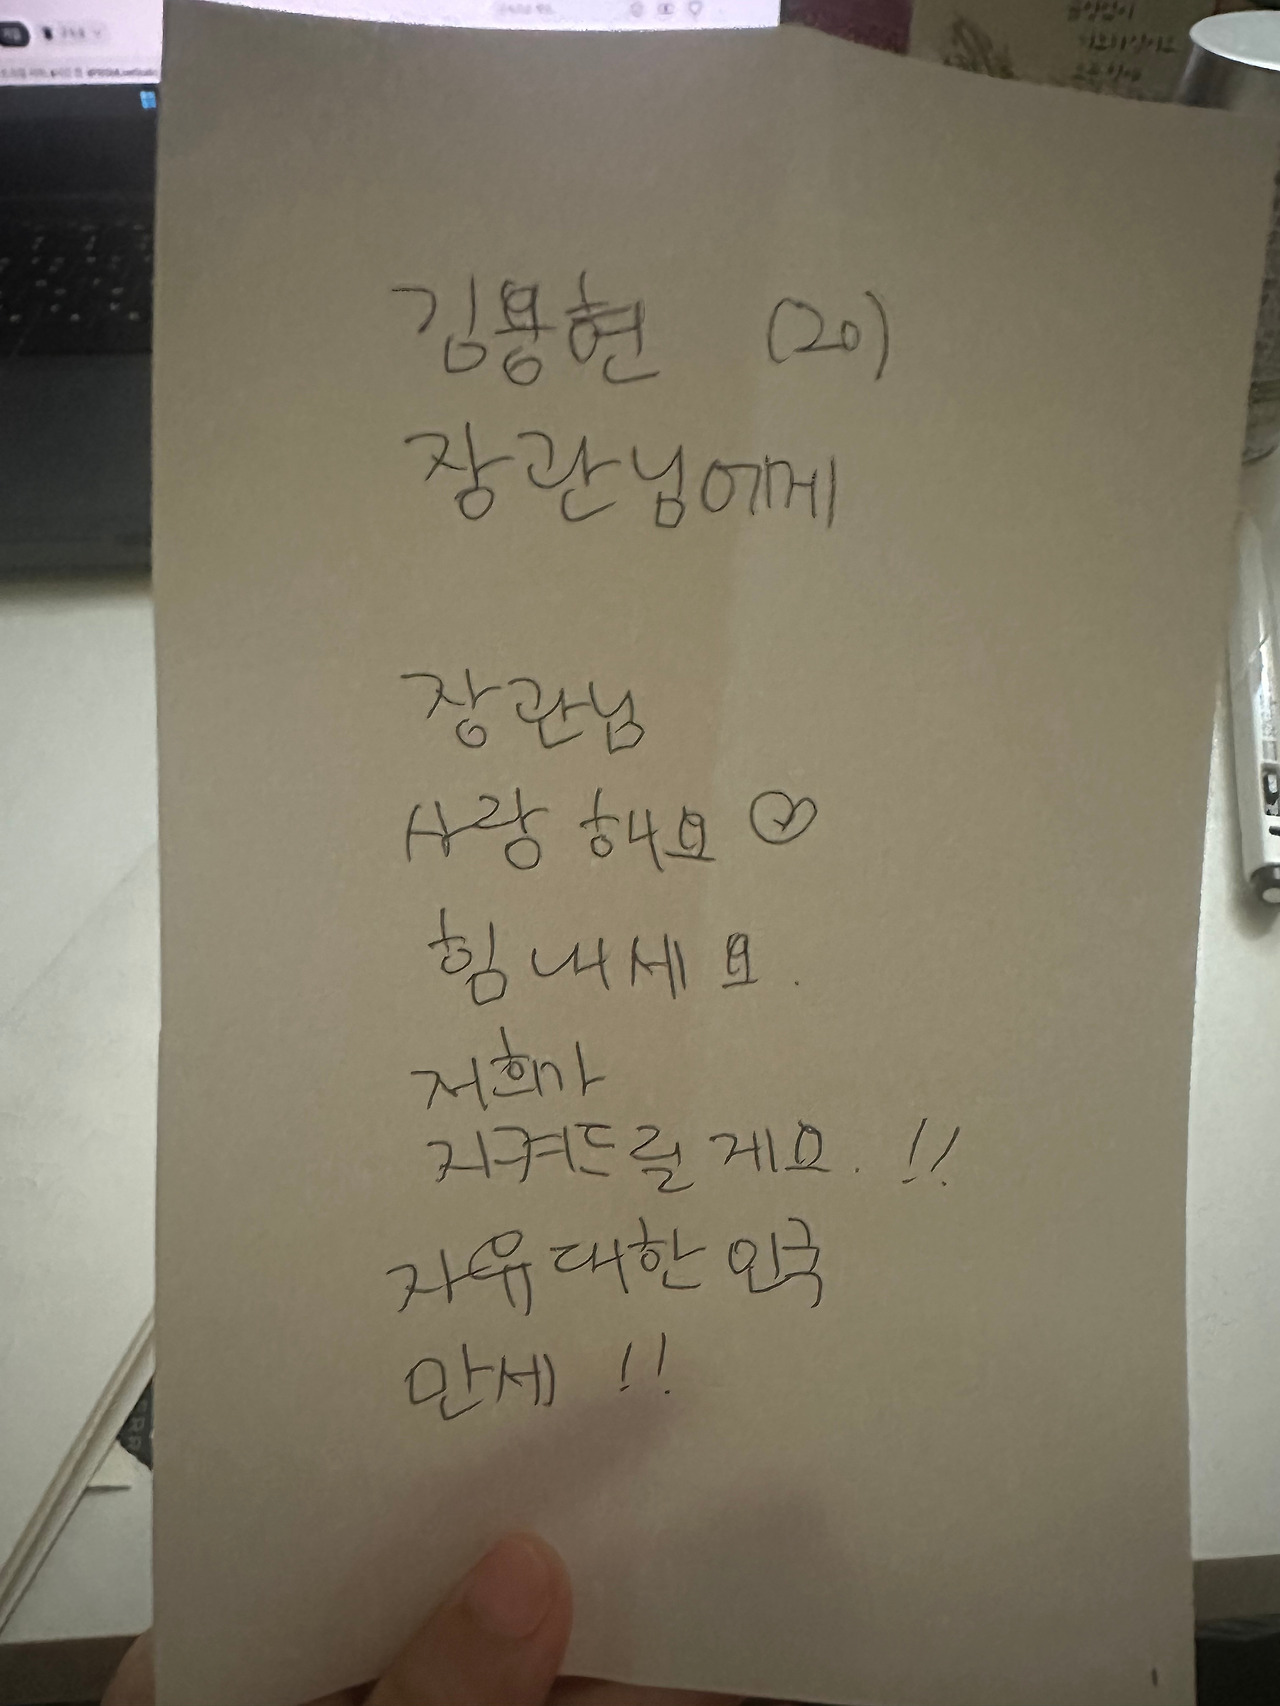 김용현 (20)
장관님에게
장관님
사랑해요♡
힘내세요.
저희가
지켜드릴게요.!!
자유대한민국
만세!!